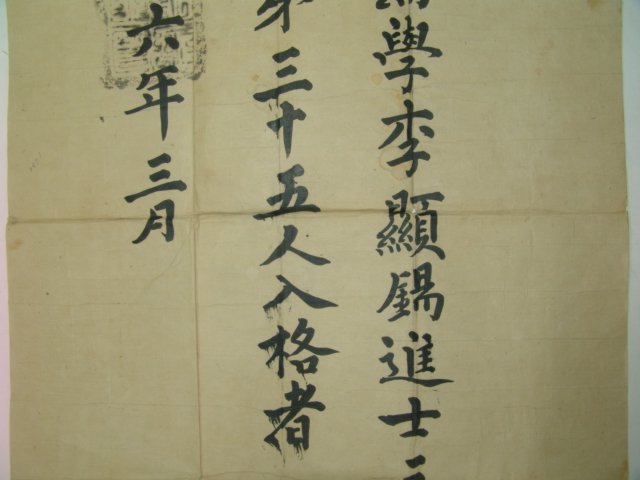 學李顯錫進士
第三十五人入格者
六年三月